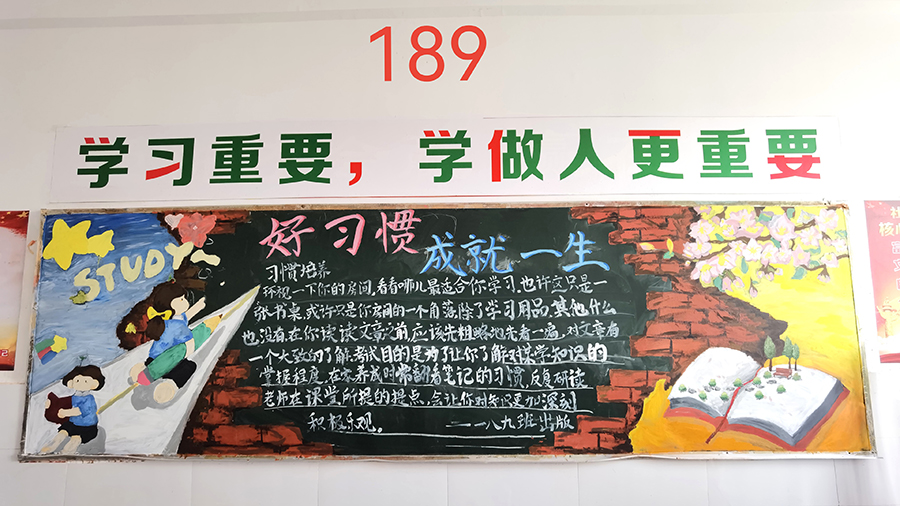 189
学习重要，学做人更重要
STUDY
好习惯
成就一生
习惯培养
环视一下你的房间，看看哪儿最适合你学习，也许这只是一
张书桌，或许只是你房间的一个角落除了学习用品，其他什么
也没有在你读读文章之前，应该先粗略地先看一遍，对文章有
一个大致的了解考试目的是为了让你了解对某学知识的
掌握程度，在家养成时常翻看笔记的习惯，反复研读
老师在课堂所提的提点，会让你对知识更加深刻
积极乐观。
一八九班出版
核心